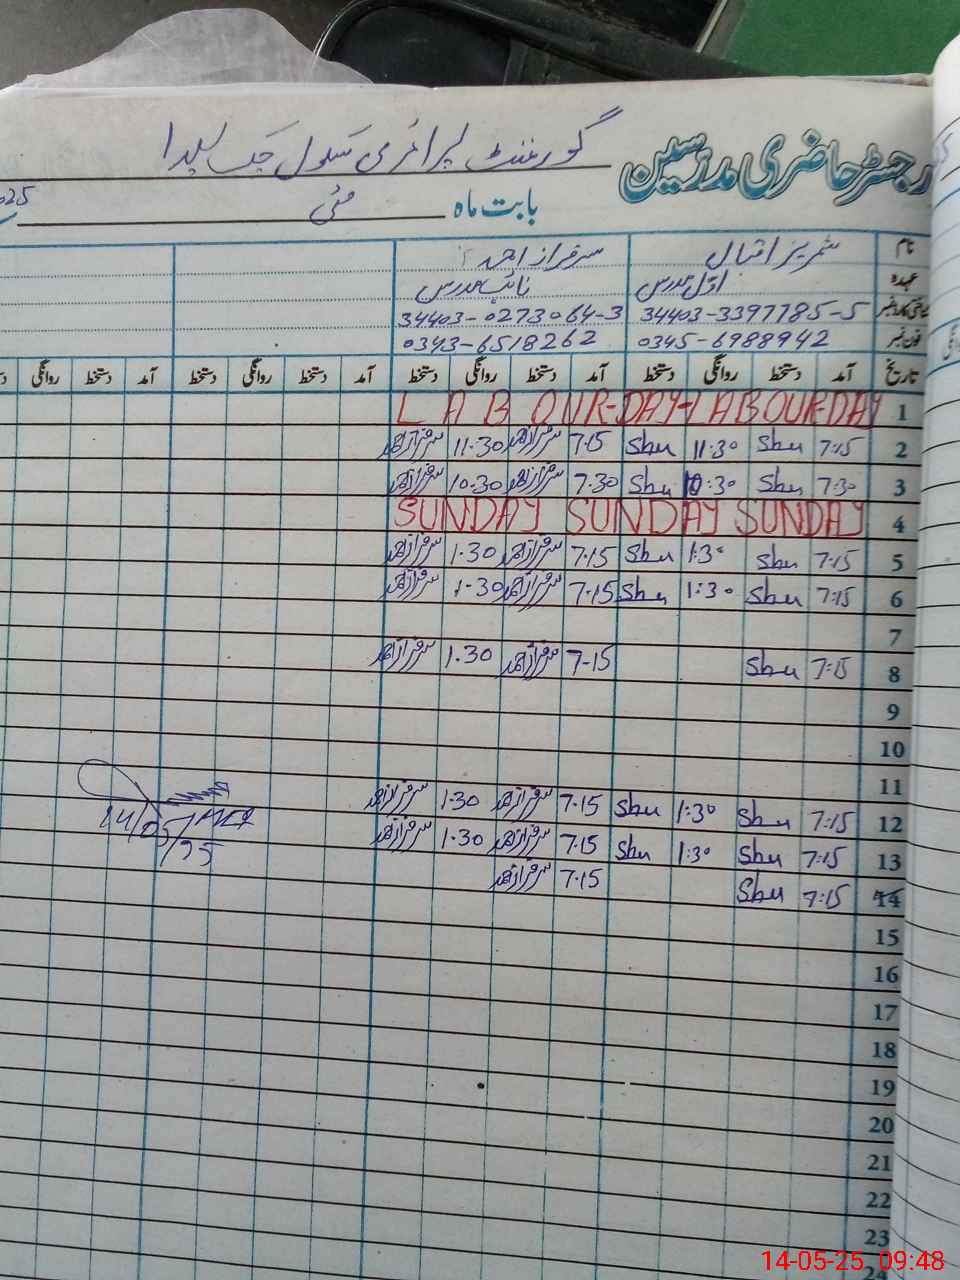 رجسٹر حاضری مدرسین گورنمنٹ پرائمری سکول چک
بابت ماہ مئی 2025
نام ثمریز اقبال سرفراز احمد
عہدہ اول مدرس نائب مدرس
شناختی کارڈ نمبر 34403-3397785-5 34403-0273064-3
فون نمبر 0345-6988942 0343-6518262
تاریخ آمد دستخط روانگی دستخط آمد دستخط روانگی دستخط آمد دستخط روانگی دستخط آمد دستخط روانگی
1 LABOUR-DAY-LABOUR-DAY
2 7:15 Sbu 11:30 Sbu 7.15 سرفراز احمد 11.30 سرفراز احمد
3 7:30 Sbu 10:30 Sbu 7.30 سرفراز احمد 10.30 سرفراز احمد
4 SUNDAY SUNDAY SUNDAY
5 7:15 Sbu 1:30 Sbu 7.15 سرفراز احمد 1.30 سرفراز احمد
6 7:15 Sbu 1:30 Sbu 7.15 سرفراز احمد 1.30 سرفراز احمد
7
8 7:15 Sbu 7-15 سرفراز احمد 1.30 سرفراز احمد
9
10
11
12 7:15 Sbu 1:30 Sbu 7.15 سرفراز احمد 1.30 سرفراز احمد
13 7:15 Sbu 1:30 Sbu 7.15 سرفراز احمد 1.30 سرفراز احمد
14 7:15 Sbu 7.15 سرفراز احمد
14/05/25
15
16
17
18
19
20
21
22
23
24
14-05-25 09:48